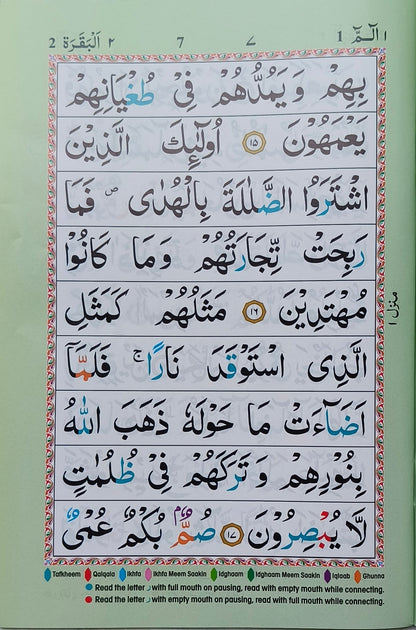 ١ الٓمّٓ 1 ٧ 7 ٢ اَلْبَقَرَة 2
بِهِمْ وَ يَمُدُّهُمْ فِیْ طُغْیَانِهِمْ
یَعْمَهُوْنَ ۝١٥ اُولٰٓئِكَ الَّذِیْنَ
اشْتَرَوُا الضَّلٰلَةَ بِالْهُدٰی ۪ فَمَا
رَبِحَتْ تِّجَارَتُهُمْ وَ مَا كَانُوْا
مُهْتَدِیْنَ ۝١٦ مَثَلُهُمْ كَمَثَلِ
الَّذِی اسْتَوْقَدَ نَارًا ۚ فَلَمَّاۤ
اَضَآءَتْ مَا حَوْلَهٗ ذَهَبَ اللّٰهُ
بِنُوْرِهِمْ وَ تَرَكَهُمْ فِیْ ظُلُمٰتٍ
لَّا یُبْصِرُوْنَ ۝١٧ صُمٌّۢ بُكْمٌ عُمْیٌ
منزل ١
Tafkheem Qalqala Ikhfa Ikhfa Meem Saakin Idghaam Idghaam Meem Saakin Iqlaab Ghunna
Read the letter ر with full mouth on pausing, read with empty mouth while connecting.
Read the letter ر with empty mouth on pausing, read with full mouth while connecting.